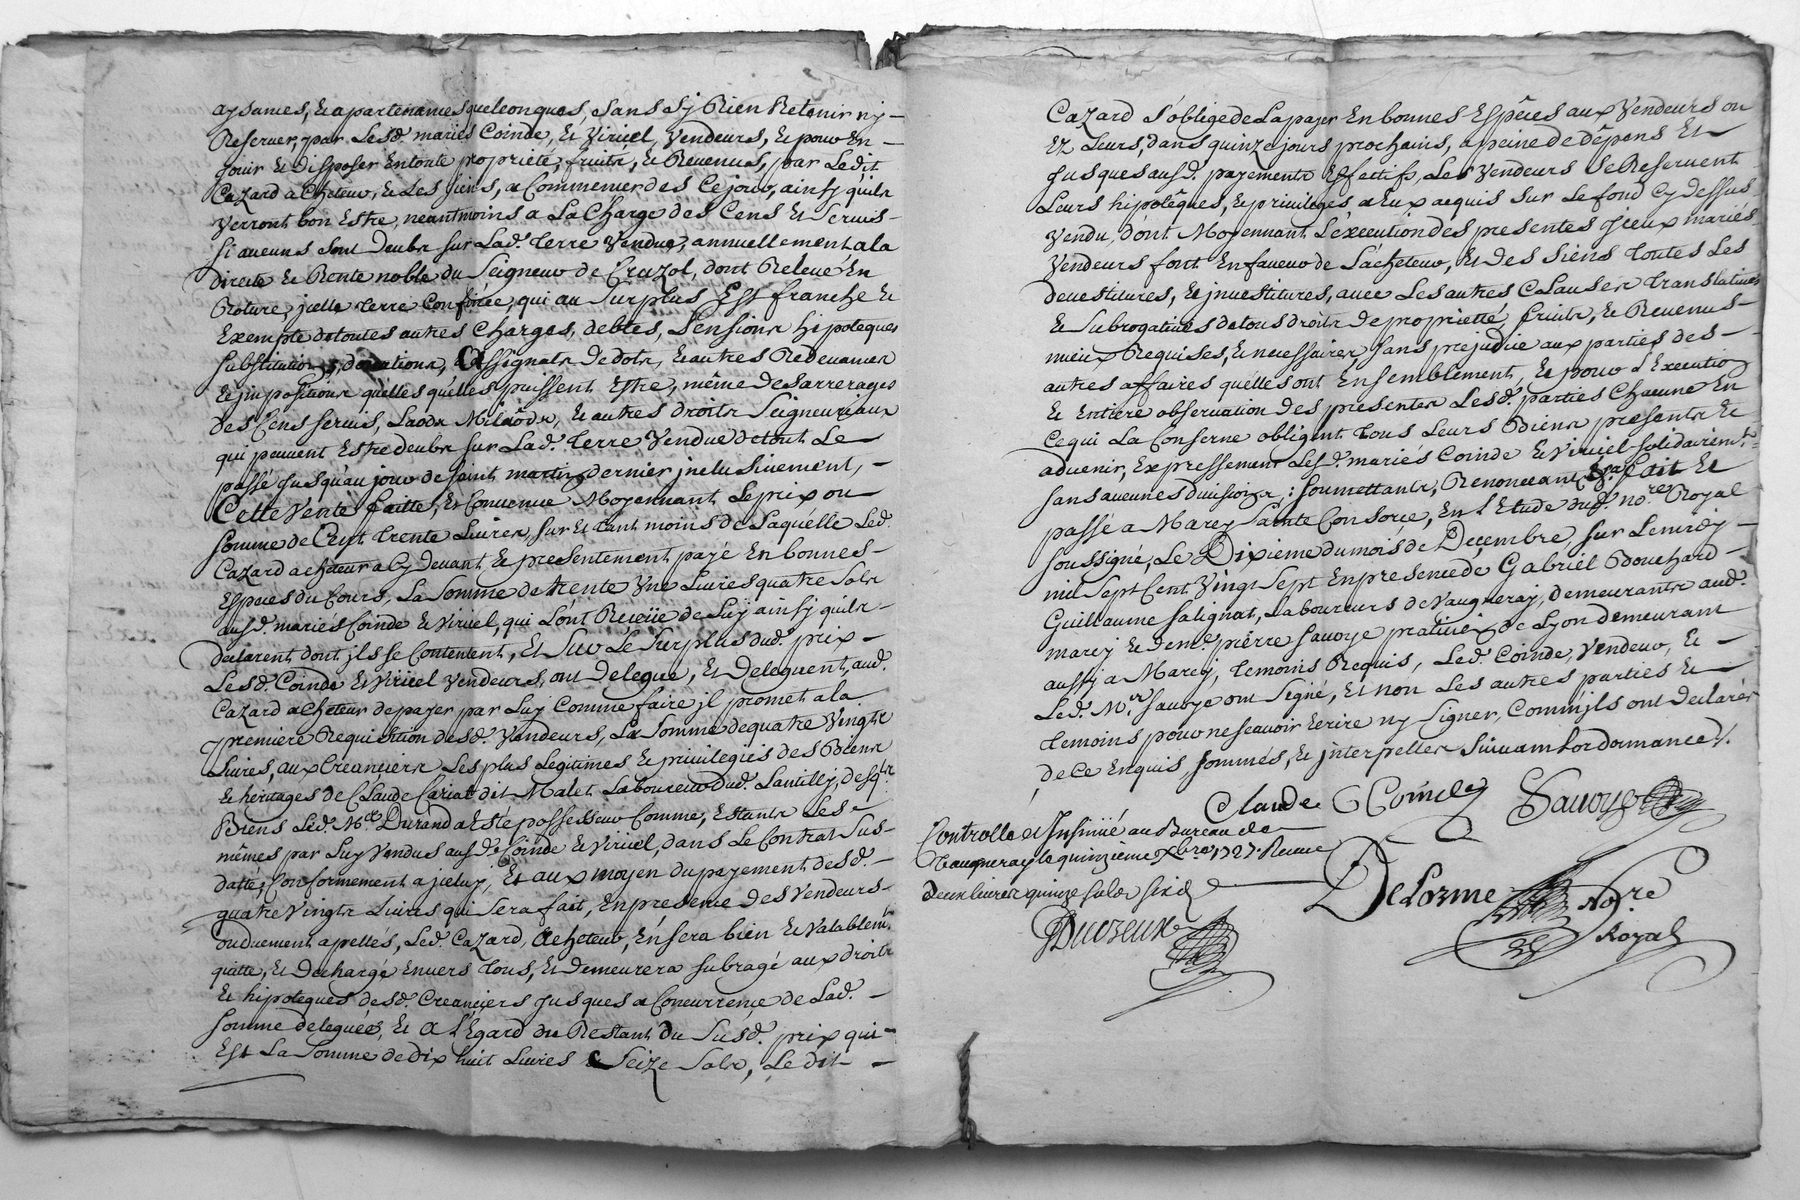 aysances, Et apartenances quelconques, sans sy Rien Retenir ny
Reserver, par Lesd. mariés Coinde, Et Viricel, Vendeurs, Et pour En
Jouir Et Disposer Entoute propriété, fruits, Et Revenus, par Ledit
Cazard acheteur, Et Les siens, a Commencer des Cejour, ainsy quils
Verront bon Estre, neantmoins a La Charge des Cens Et Servis
si aucuns sont deubs sur Lad. terre Vendue, annuellement ala
directe Et Rente noble du Seigneur de Cruzol, dont Releve En
Roture, jcelle terre Confinée, qui au Surplus Est franche Et
Exempte detoutes autres Charges, debtes, Pensions hipoteques
substitutions, donations, Assignats dedots, Et autres Redevances
Et jmpositions quelles quelles puissent Estre, même desarrerages
des Cens servis, Laods Milaods, Et autres droits Seigneuriaux
qui peuvent Estre deubs sur Lad. terre Vendue detout Le
passé Jusqu'au jour de saint martin dernier jnclusivement,
Cette Vente faitte, Et Convenue Moyennant Le prix ou
somme de Cent trente Livres, sur Et tant moins de Laquelle Led.
Cazard acheteur a Cy devant Et presentement payé En bonnes
Especes du Cours, La somme de trente Une Livres quatre sols
ausd. mariés Coinde Et Viricel, qui L'ont Receüe de Luy ainsy quils
declarent dont jls se Contentent, Et sur Le surplus dud. prix
Lesd. Coinde Et Viricel Vendeurs, ont Delegué, Et Deleguent, aud.
Cazard acheteur depayer par Luy Comme faire jl promet ala
premiere Requisition desd. Vendeurs, La somme dequatre Vingts
Livres, aux Creanciers Les plus Legitimes Et privilegiés des Biens
Et heritages de Claude Cariat dit Malet Laboureur dud. Lantilly, desqls
Biens Led. Me. Durand a Esté possesseur Comme, Estants Les
mêmes par Luy Vendus ausd. Coinde Et Viricel, dans Le Contrat sus
datté, Conformement a jceluy, Et aux moyen du payement desd.
quatre Vingts Livres qui sera fait, En presence des Vendeurs
ou duement apellés, Led. Cazard, Acheteur, En sera bien Et Valablemt.
quitte, Et decharge Envers tous, Et Demeurera subrogé aux droits
Et hipoteques desd. Creanciers Jusques a Concurrence de Lad.
somme deleguée, Et A l'Egard du Restant Du susd. prix qui
Est La somme de dix huit Livres Seize sols, Le dit
Cazard s'oblige de La payer En bonnes Especes aux Vendeurs ou
Ez Leurs, dans quinze jours prochains, a peine de dépens Et
Jusques ausd. payements Effectifs, Les Vendeurs se Reservent
Leurs hipotêques, Et privileges a Eux acquis sur Le fond Cy dessus
Vendu, dont Moyennant L'éxécution des presentes Jceux mariés
Vendeurs font En faveur de L'acheteur, Et des siens toutes Les
devestitures, Et jnvestitures, avec Les autres Clauses translatives
Et subrogatives de tous droits de propriette, fruits, Et Revenus
mieux Requises, Et necessaires, sans prejudice aux parties des
autres affaires qu'elles ont Ensemblement, Et pour l'Execution
Et Entiere observation des presentes Lesd. parties Chacune En
Cequi La Conserne obligent tous Leurs Biens presents Et
advenir, Expressement Lesd. mariés Coinde Et Viricel solidairemt.
sans aucunes division; soumettants, Renonceant fait Et
passé a Marcy Sainte Consorce, En L'Etude dud. nore. Royal
soussigné, Le Dixieme du mois de Decembre, sur Le midy
mil sept Cent Vingt sept En presence de Gabriel Bouchard
Guillaume salignat, Laboureurs de Vaugneray, demeurants aud.
marcy Et de me. pierre savoye praticien de Lyon demeurant
aussy a Marcy, temoins Requis, Led. Coinde, Vendeur, Et
Led. Mr. savoye ont signé, Et non Les autres parties Et
temoins pour ne scavoir Ecrire ny signer, Comm'jls ont declarés
de Ce Enquis, sommés, Et jnterpellés suivant Lordonnance
Claude Coinde Savoye
Controllé et Insinüé au Bureau de
Vaugneray le quinzième Xbre 1727. Receu
deux livres quinze sols six d
Delorme Nore
Royal
Duozeux